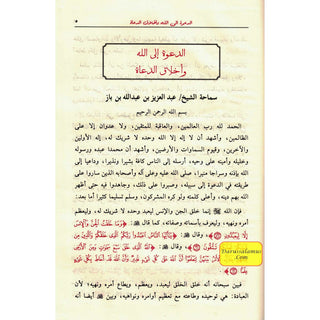 الدعوة إلى الله وأخلاق الدعاة
٣
الدعوة إلى الله
وأخلاق الدعاة
سماحة الشيخ/ عبد العزيز بن عبدالله بن باز
بسم الله الرحمن الرحيم
الحمد لله رب العالمين، والعاقبة للمتقين، ولا عدوان إلا على
الظالمين، وأشهد أن لا إله إلا الله وحده لا شريك له، إله الأولين
والآخرين، وقيوم السماوات والأرضين، وأشهد أن محمدا عبده ورسوله
وخليله وأمينه على وحيه، أرسله إلى الناس كافة بشيرا ونذيرا، وداعيا إلى
الله بإذنه وسراجا منيرا، صلى الله عليه وعلى آله وأصحابه الذين ساروا على
طريقته في الدعوة إلى سبيله، وصبروا على ذلك، وجاهدوا فيه حتى أظهر
الله بهم دينه، وأعلى كلمته ولو كره المشركون، وسلم تسليما كثيرا أما بعد:
فإن الله إنما خلق الجن والإنس ليعبد وحده لا شريك له، وليعظم
أمره ونهيه، وليعرف بأسمائه وصفاته، كما قال: ﴿وَمَا خَلَقْتُ الْجِنَّ وَالْإِنْسَ
إِلَّا لِيَعْبُدُونِ﴾ وقال: ﴿يَا أَيُّهَا النَّاسُ اعْبُدُوا رَبَّكُمُ الَّذِي خَلَقَكُمْ وَالَّذِينَ مِنْ
تَتَّقُونَ﴾ وقال: ﴿اللَّهُ الَّذِي خَلَقَ سَبْعَ سَمَاوَاتٍ وَمِنَ الْأَرْضِ
Darussalamus
.Com
فبين سبحانه أنه خلق الخلق ليعبد، ويعظم، ويطاع أمره ونهيه، لأن
العبادة: هي توحيده وطاعته مع تعظيم أوامره ونواهيه، وبين أيضا أنه